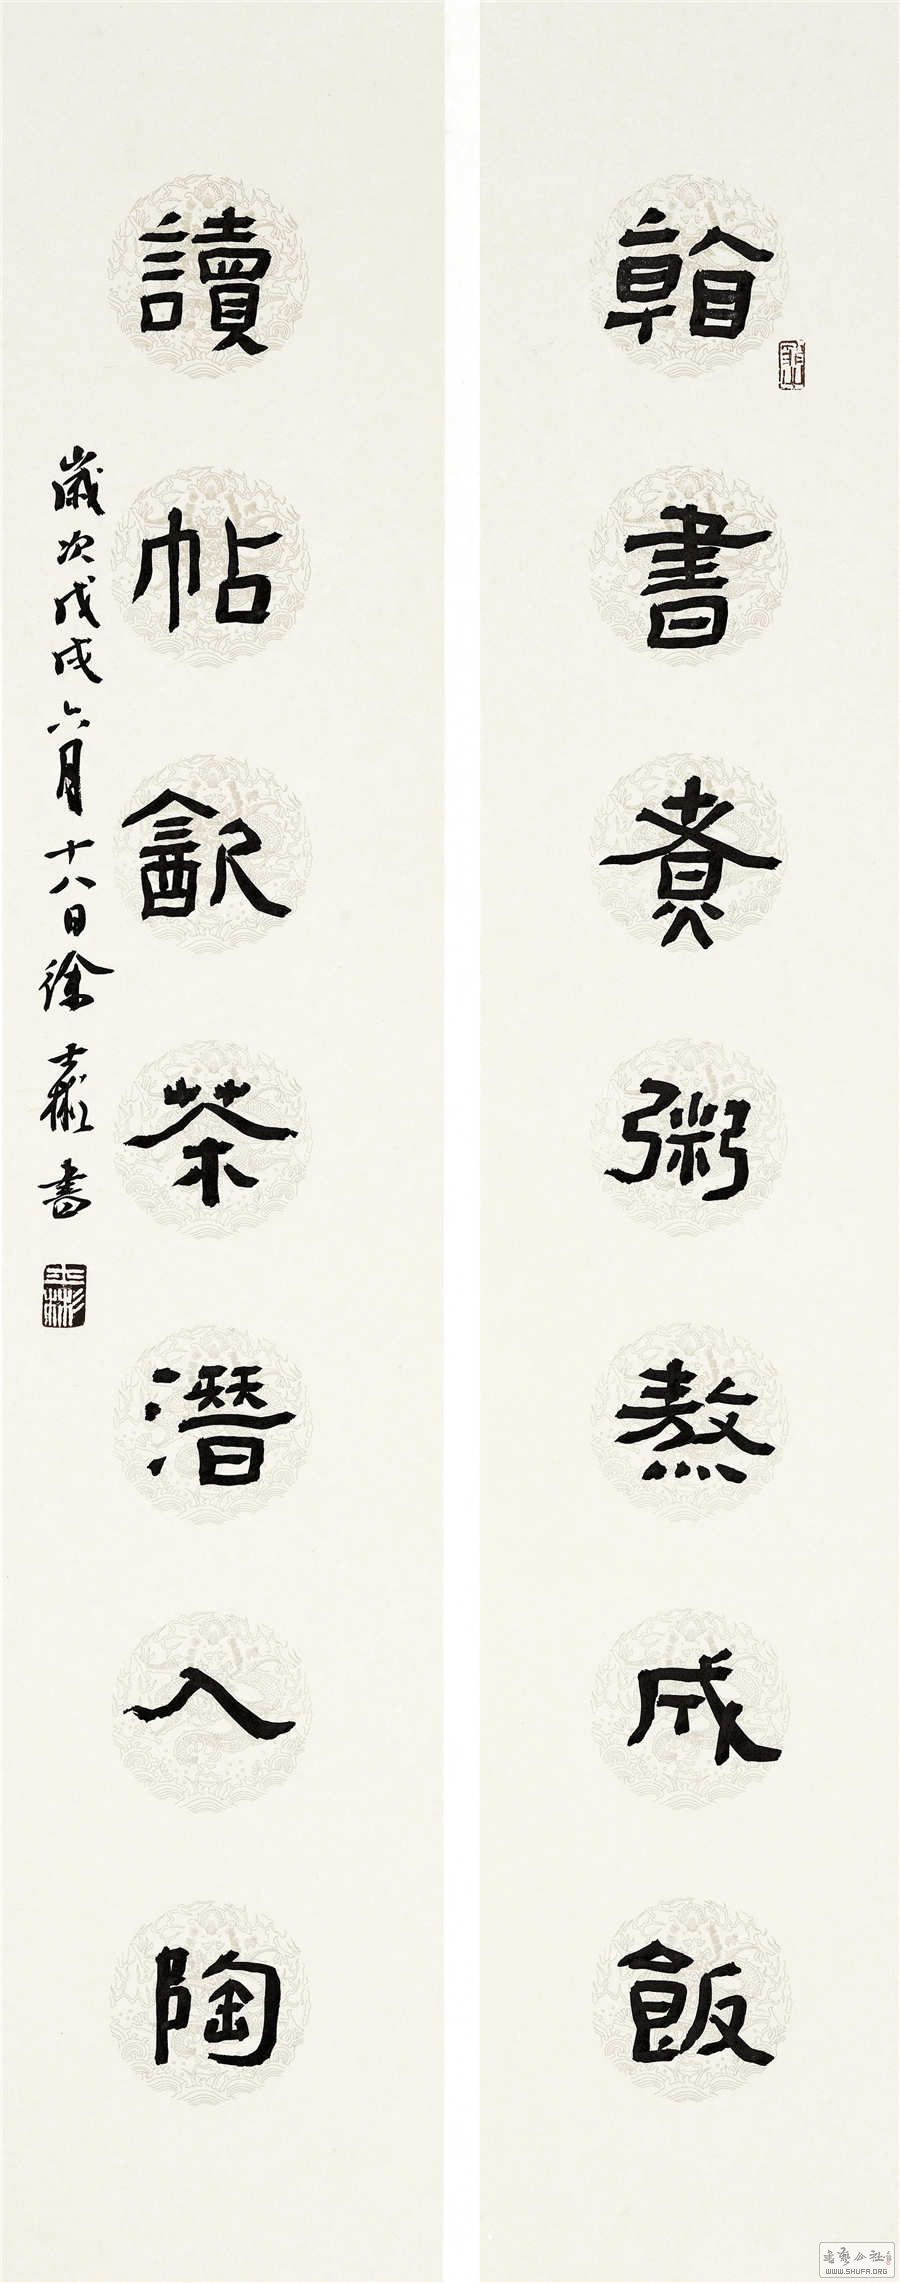 翰書煮粥熬成飯
讀帖㱃茶潛入陶
歲次戊戌六月十八日徐士彬書
士彬
書藝公社
WWW.SHUFA.ORG